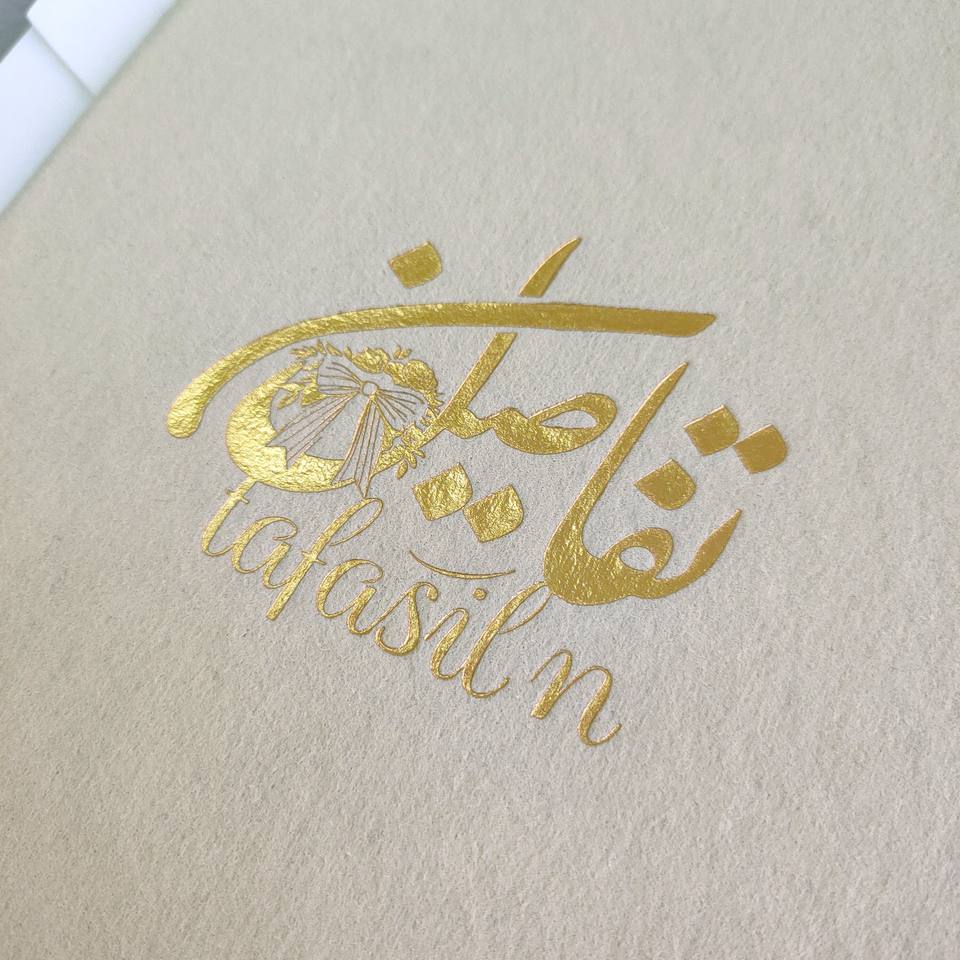 تفاصيل ن
tafasil n